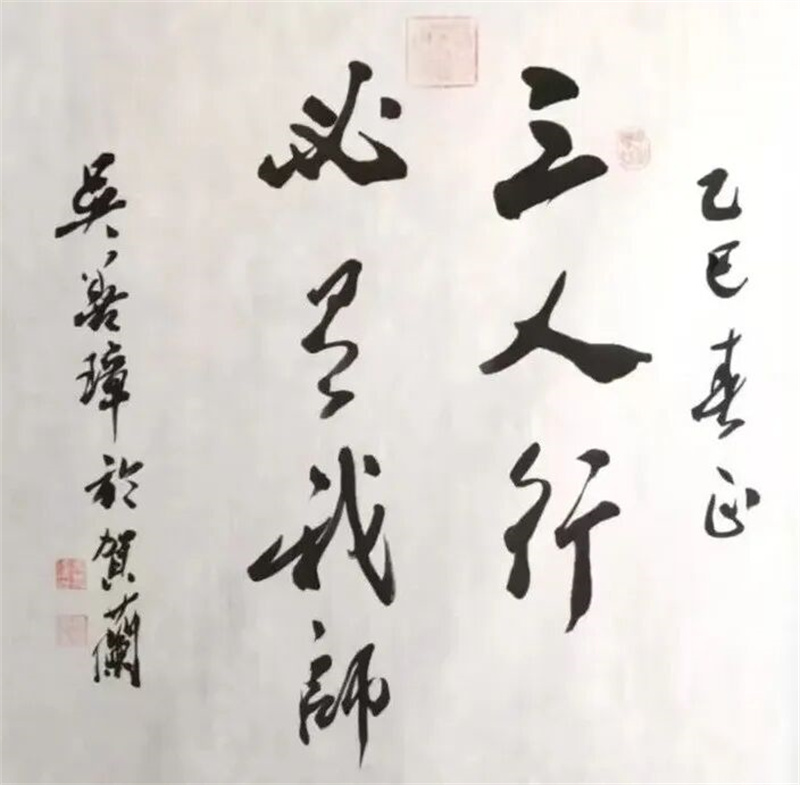 乙巳春正
三人行
必有我師
吳善璋於賀蘭